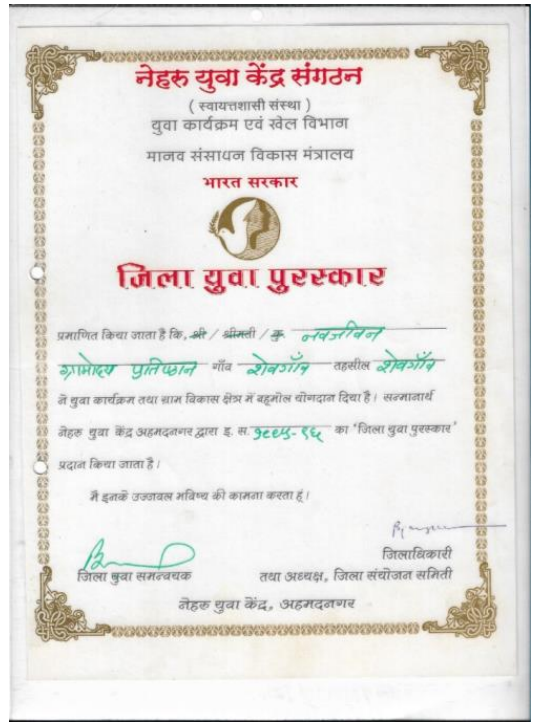 नेहरु युवा केंद्र संगठन
( स्वायत्तशासी संस्था )
युवा कार्यक्रम एवं खेल विभाग
मानव संसाधन विकास मंत्रालय
भारत सरकार
जिला युवा पुरस्कार
प्रमाणित किया जाता है कि, श्री / श्रीमती / कु. नवजीवन
ग्रामोदय प्रतिष्ठान गाँव शेवगाँव तहसील शेवगाँव
ने युवा कार्यक्रम तथा ग्राम विकास क्षेत्र में बहूमोल योगदान दिया है। सन्मानार्थ
नेहरु युवा केंद्र अहमदनगर द्वारा इ. स. १९९५-९६ का 'जिला युवा पुरस्कार'
प्रदान किया जाता है।
मै इनके उज्जवल भविष्य की कामना करता हूं।
जिलाधिकारी
जिला युवा समन्वयक तथा अध्यक्ष, जिला संयोजन समिती
नेहरु युवा केंद्र, अहमदनगर